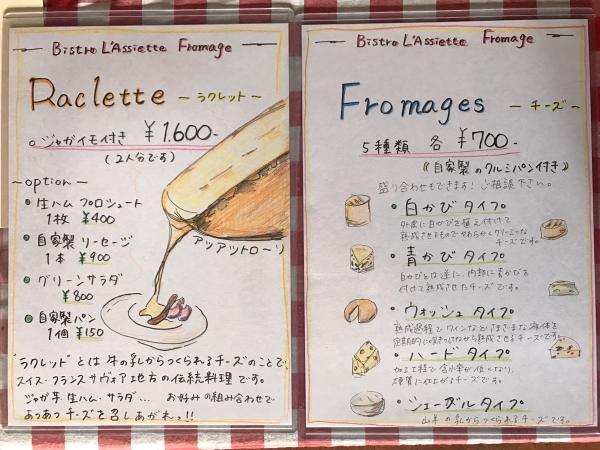 Bistro L'Assiette Fromage
Raclette －ラクレット－
○ジャガイモ付き ￥1,600-
(2人分です)
～option～
生ハム プロシュート
1枚 ￥400
自家製 リーセージ
1本 ￥900
グリーンサラダ
￥800
自家製パン
1個 ￥150
アッアツトローリ
"ラクレット"とは牛の乳からつくられるチーズのことで、
スイス・フランスサヴォア地方の伝統料理です。
ジャガ芋、生ハム、サラダ… お好みの組み合わせで
あつあつチーズを召しあがれっ!!
Bistro L'Assiette Fromage
Fromages －チーズ－
5種類 各 ￥700-
《自家製のクルミパン付き》
盛り合わせもできます！ご相談下さい。
・白かびタイプ
外皮に白かびを植え付けて
熟成させるものでやわらかくクリーミーな
チーズです。
・青かびタイプ
白かびとは逆に、内部に青かびを
付けて熟成させたチーズです。
・ウォッシュタイプ
熟成過程でワインなどさまざまな液体を
定期的に吹きつけながら熟成させるチーズです。
・ハードタイプ
加工程で含水率が低くなり、
硬質に仕上がるチーズです。
・シェーブルタイプ
山羊の乳からつくられるチーズです。